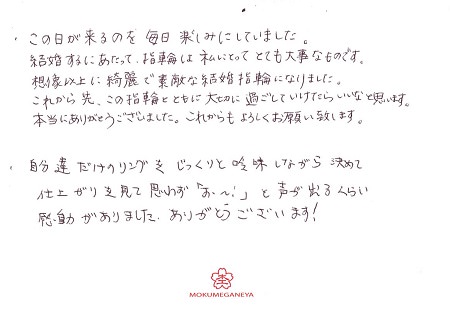 ・この日が来るのを毎日楽しみにしていました。
結婚するにあたって、指輪は私にとってとても大事なものです。
想像以上に綺麗で素敵な結婚指輪になりました。
これから先、この指輪とともに大切に過ごしていけたらいいなと思います。
本当にありがとうございました。これからもよろしくお願い致します。
・自分達だけのリングをじっくりと吟味しながら決めて
仕上がりを見て思わず「お〜!」と声が出るくらい
感動がありました。ありがとうございます!
MOKUMEGANEYA